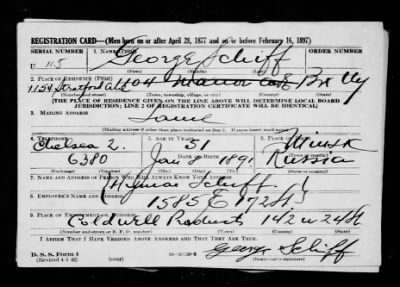 REGISTRATION CARD—(Men born on or after April 28, 1877 and on or before February 16, 1897)
SERIAL NUMBER 1. NAME (Print) ORDER NUMBER
U 115 George Schiff
2. PLACE OF RESIDENCE (Print)
1154 Stratford Ave 1104 Manor Bx NY
(Number and street) (Town, township, village, or city) (County) (State)
[THE PLACE OF RESIDENCE GIVEN ON THE LINE ABOVE WILL DETERMINE LOCAL BOARD
JURISDICTION; LINE 2 OF REGISTRATION CERTIFICATE WILL BE IDENTICAL]
3. MAILING ADDRESS
Same
[Mailing address if other than place indicated on line 2. If same insert word same]
4. TELEPHONE 5. AGE IN YEARS 6. PLACE OF BIRTH
Chelsea 2. 51 Minsk
6380 DATE OF BIRTH Jan 8 1891 Russia
7. NAME AND ADDRESS OF PERSON WHO WILL ALWAYS KNOW YOUR ADDRESS
Schiff
1585 E 172 St
8. EMPLOYER'S NAME AND ADDRESS
Coldwell Products 142 W 24 St
9. PLACE OF EMPLOYMENT OR BUSINESS
(Number and street or R. F. D. number) (Town) (County) (State)
I AFFIRM THAT I HAVE VERIFIED ABOVE ANSWERS AND THAT THEY ARE TRUE.
D. S. S. Form 1
(Revised 4-1-42) (over) George Schiff
(Registrant's signature)